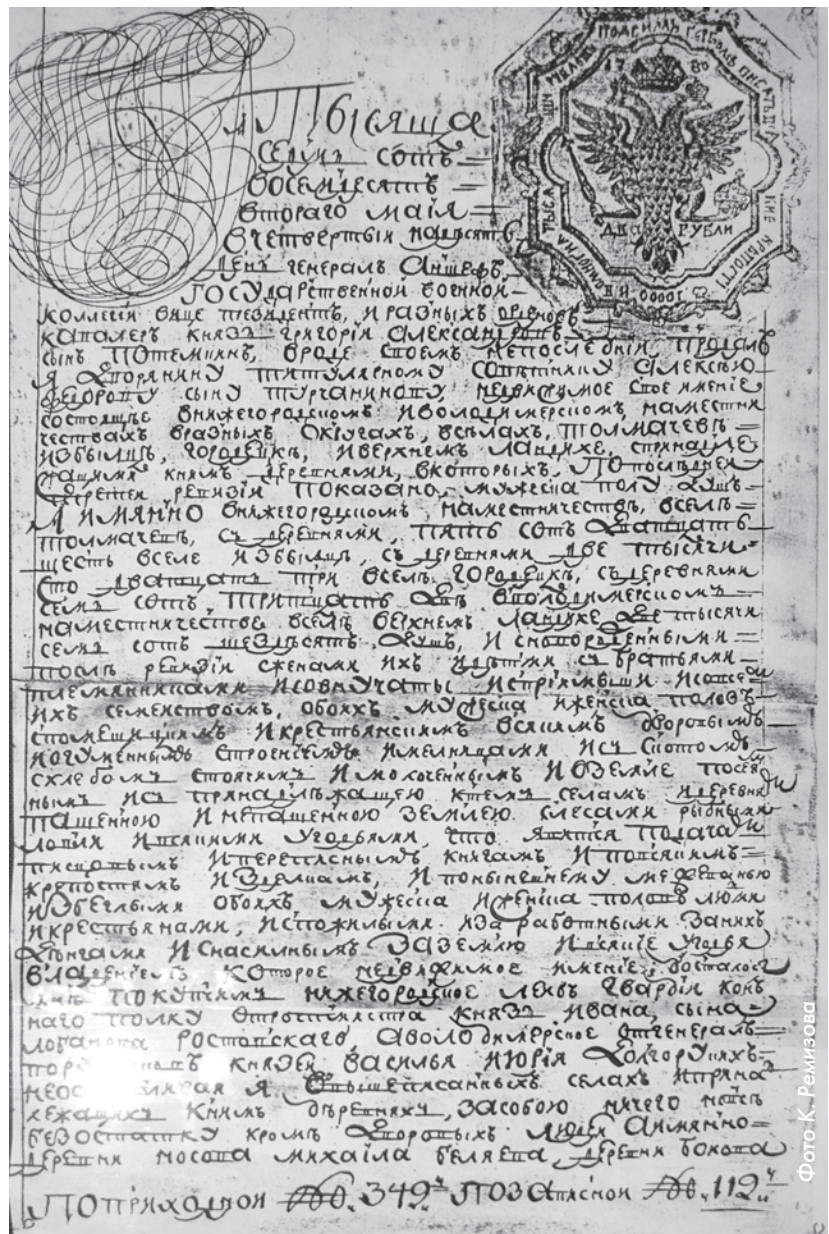 Тысяща
семъ сотъ =
восемдесятъ =
втораго маiя =
в четвертыи надесять
день генералъ Аншефъ,
ГОСУДарственной военной =
коллегiи вице президентъ, и разныхъ орденовъ =
кавалеръ князь григорiи Александровъ =
сынъ ПОтемкинъ, вроде своемъ непоследнiи, продалъ
я дворянину титулярному советнику Алексею
федорову сыну турчанинову, недвижимое свое именiе
состоящее внижегородскомъ иволодимерскомъ, наместни
чествахъ вразныхъ округахъ, всѣлахъ, толмачевѣ =
избыльцѣ, городецкѣ, иверхнемъ ландихе, спринадле
жащими книмъ деревнями, вкоторыхъ, по последней
ревизiи показано, мужеска полу душъ =
А имянно внижегородскомъ, наместничествѣ, вселѣ =
толмачевѣ, съ деревнями, пять сотъ двадцать
шесть вселе избыльцѣ, съ деревнями две тысячи =
сто дватцать три вселѣ городецкѣ, съ деревнями
семь сотъ тритцать двѣ вволодимерскомъ =
наместничестве вселѣ верхнемъ ландихе две тысячи
семь сотъ шездѣсятъ душъ, и сноворожденными =
послѣ ревизiи сженами ихъ идѣтми съ братьями =
племянниками исовнучаты испрiимыши исовсем
ихъ семействомъ, обоихъ мужеска иженска половъ
спомещицкимъ икрестьянскимъ всякимъ дворовымъ
иогуменнымъ строенiемъ имелницами исъ скотомъ
схлебомъ стоячимъ имолоченнымъ ивземле посея
нымъ исъ принадлежащею ктемъ селамъ идеревням
пашенною инепашенною землею слесами рыбными
ловли ивсякими угодьями, что явится подачам
писцовымъ иперепискнымъ книгамъ иповсякимъ =
крепостямъ издѣлкамъ, ипонынешнему межеванью
избеглыми обоихъ мужеска иженска половъ люми
икрестьянами, испожилыми иза работными заних
денгами и заземлю ивсякiе угодья
владенiемъ которое недвижимое именiе досталось
мнѣ покупкимъ нижегородское леибъ гвардiи кон
наго полку отротмистра князь Ивана, сына
лобанова Ростовскаго, Аволодимерское отгенералъ =
князей василья июрiя долгоруких =
я ввышеписанныхъ селахъ ипринад
лежащихъ книмъ дѣревняхъ, засобою ничего
безостатку кромѣ дворовыхъ людей Аимянно =
деревни носова михаила беляева деревни бокова
По приходной №. 349й по записной №. „112й"
ПОДСИМЪ ГЕРБОМЪ ПИСАТЬ
КРѢПОСТИ
10000
17 80
ДВА РУБЛИ
Фото К. Ремизова